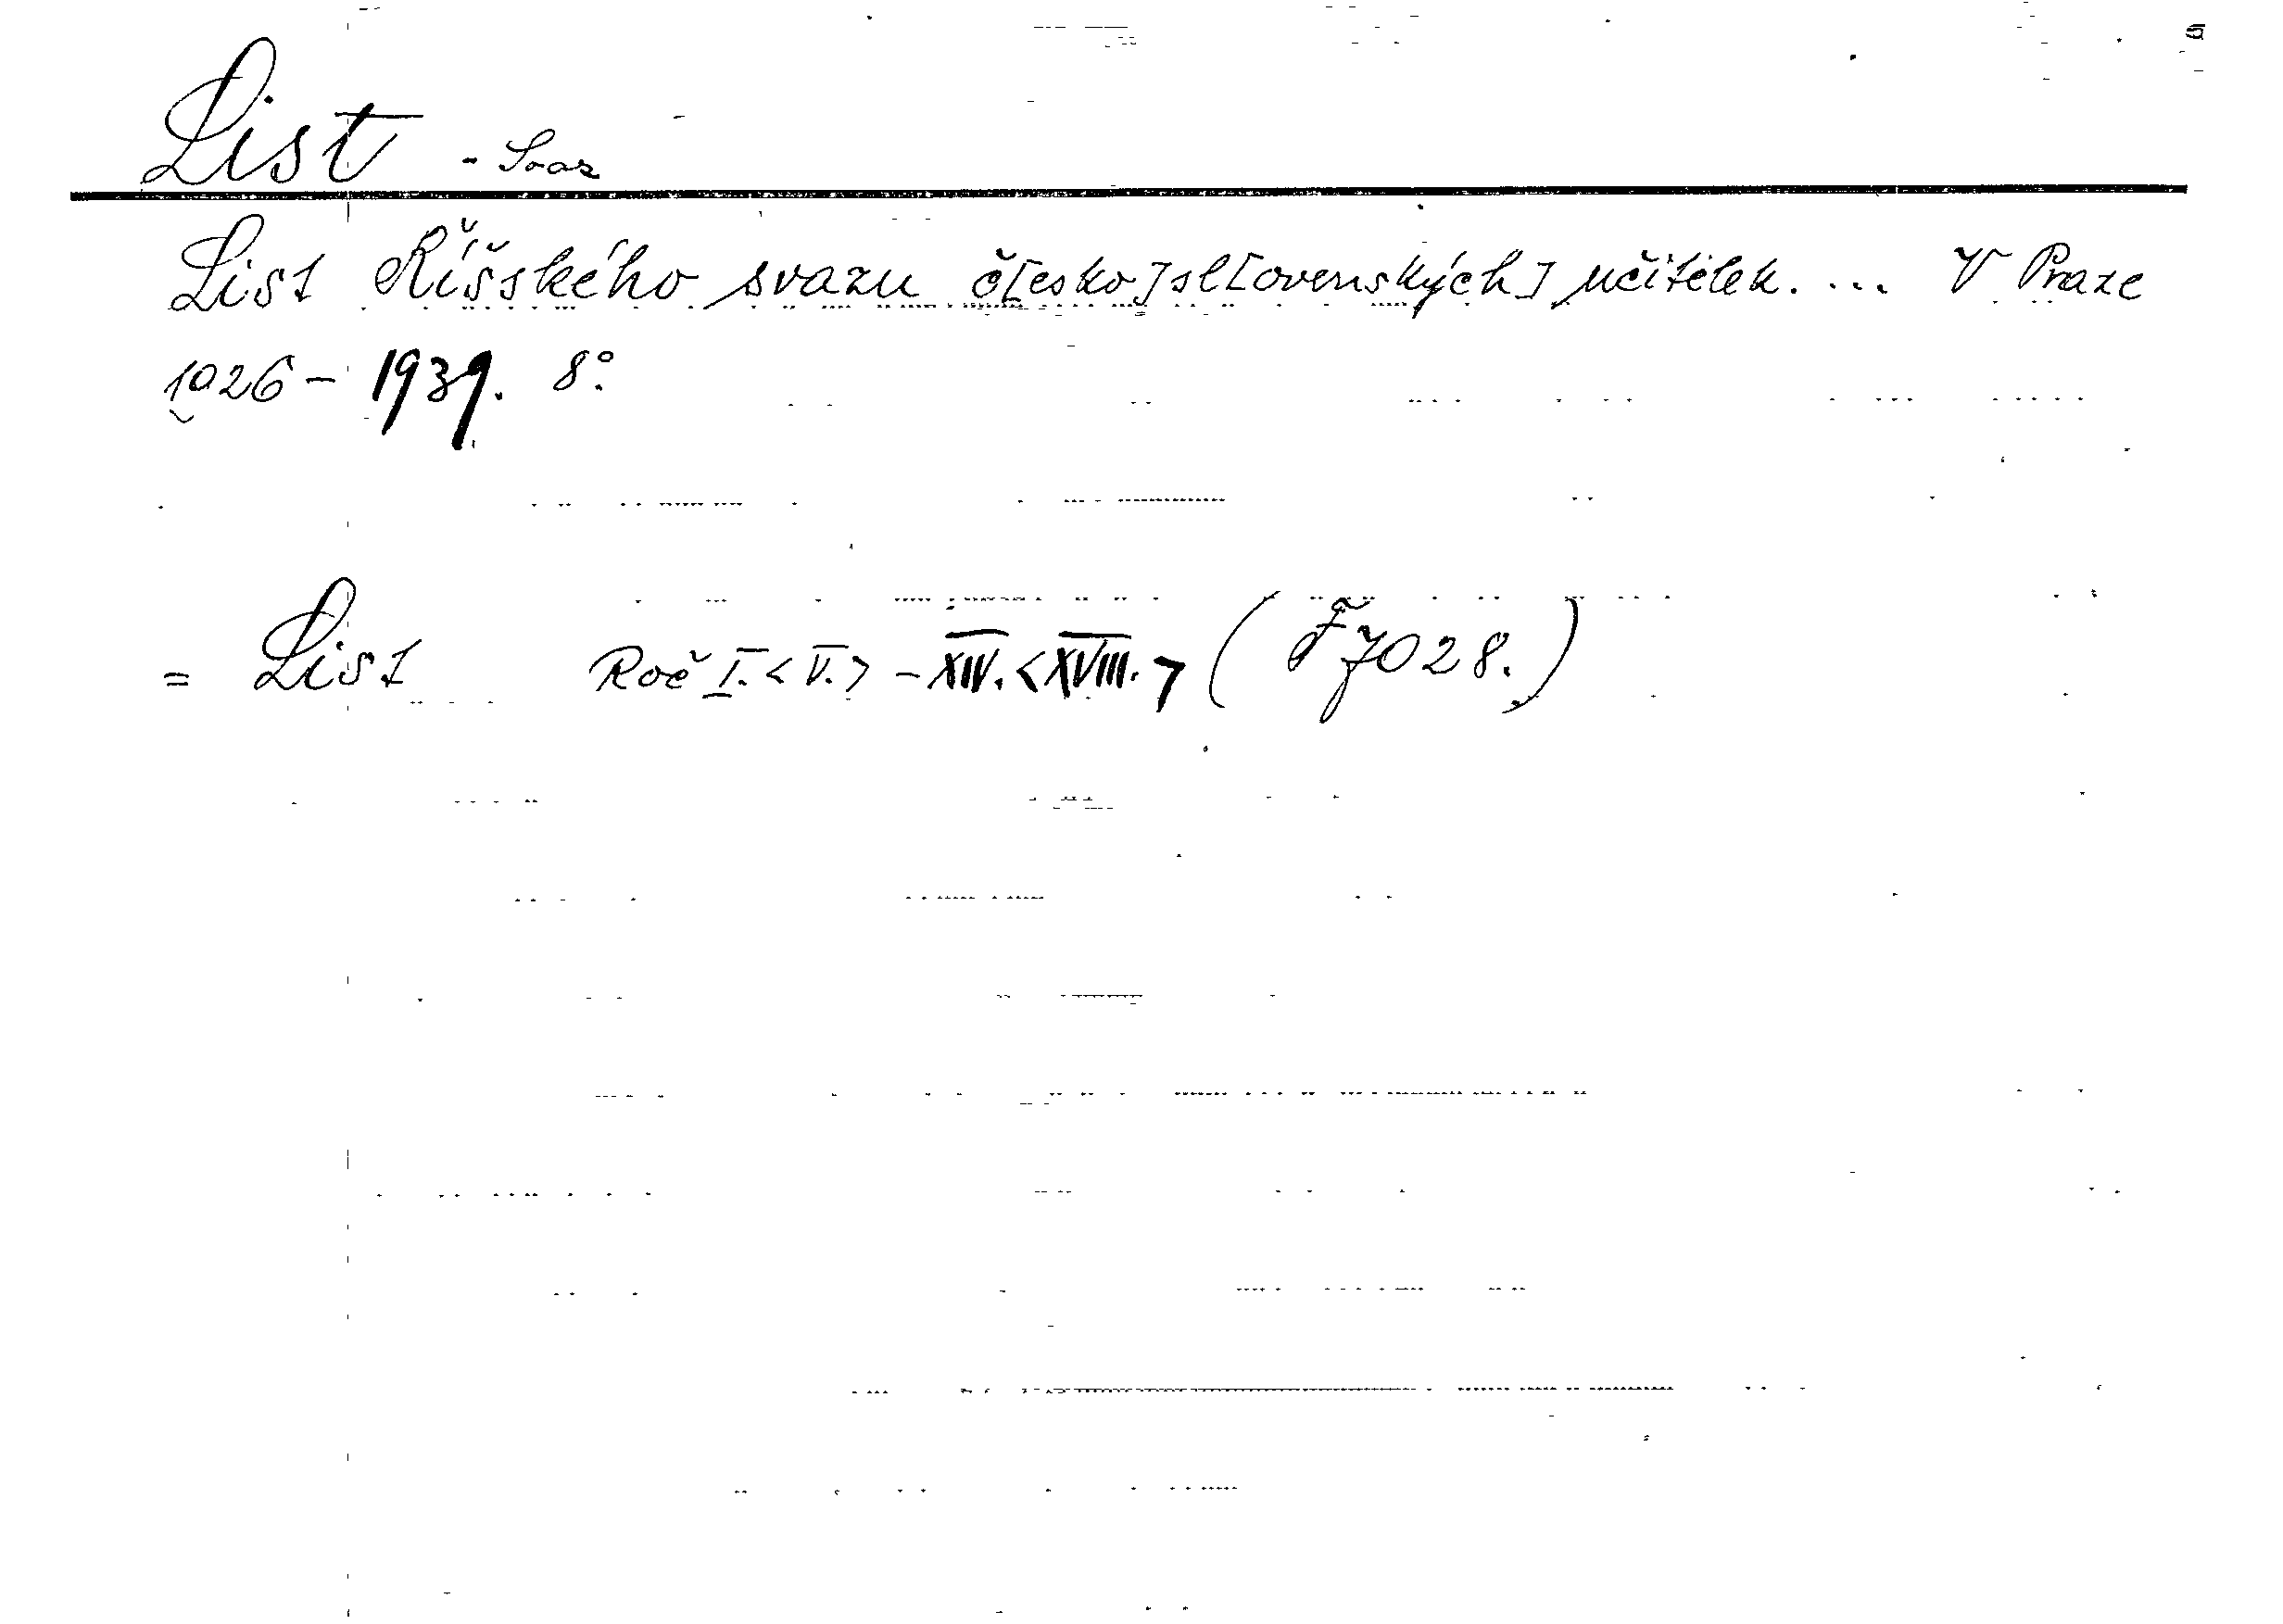 List - Svaz
List Říšského svazu č[esko]sl[ovenských] učitelek. ... V Praze
1926 - 1939. 8°.
= List Roč I. < V. > - XIV. < XVIII. > ( F 7028. )